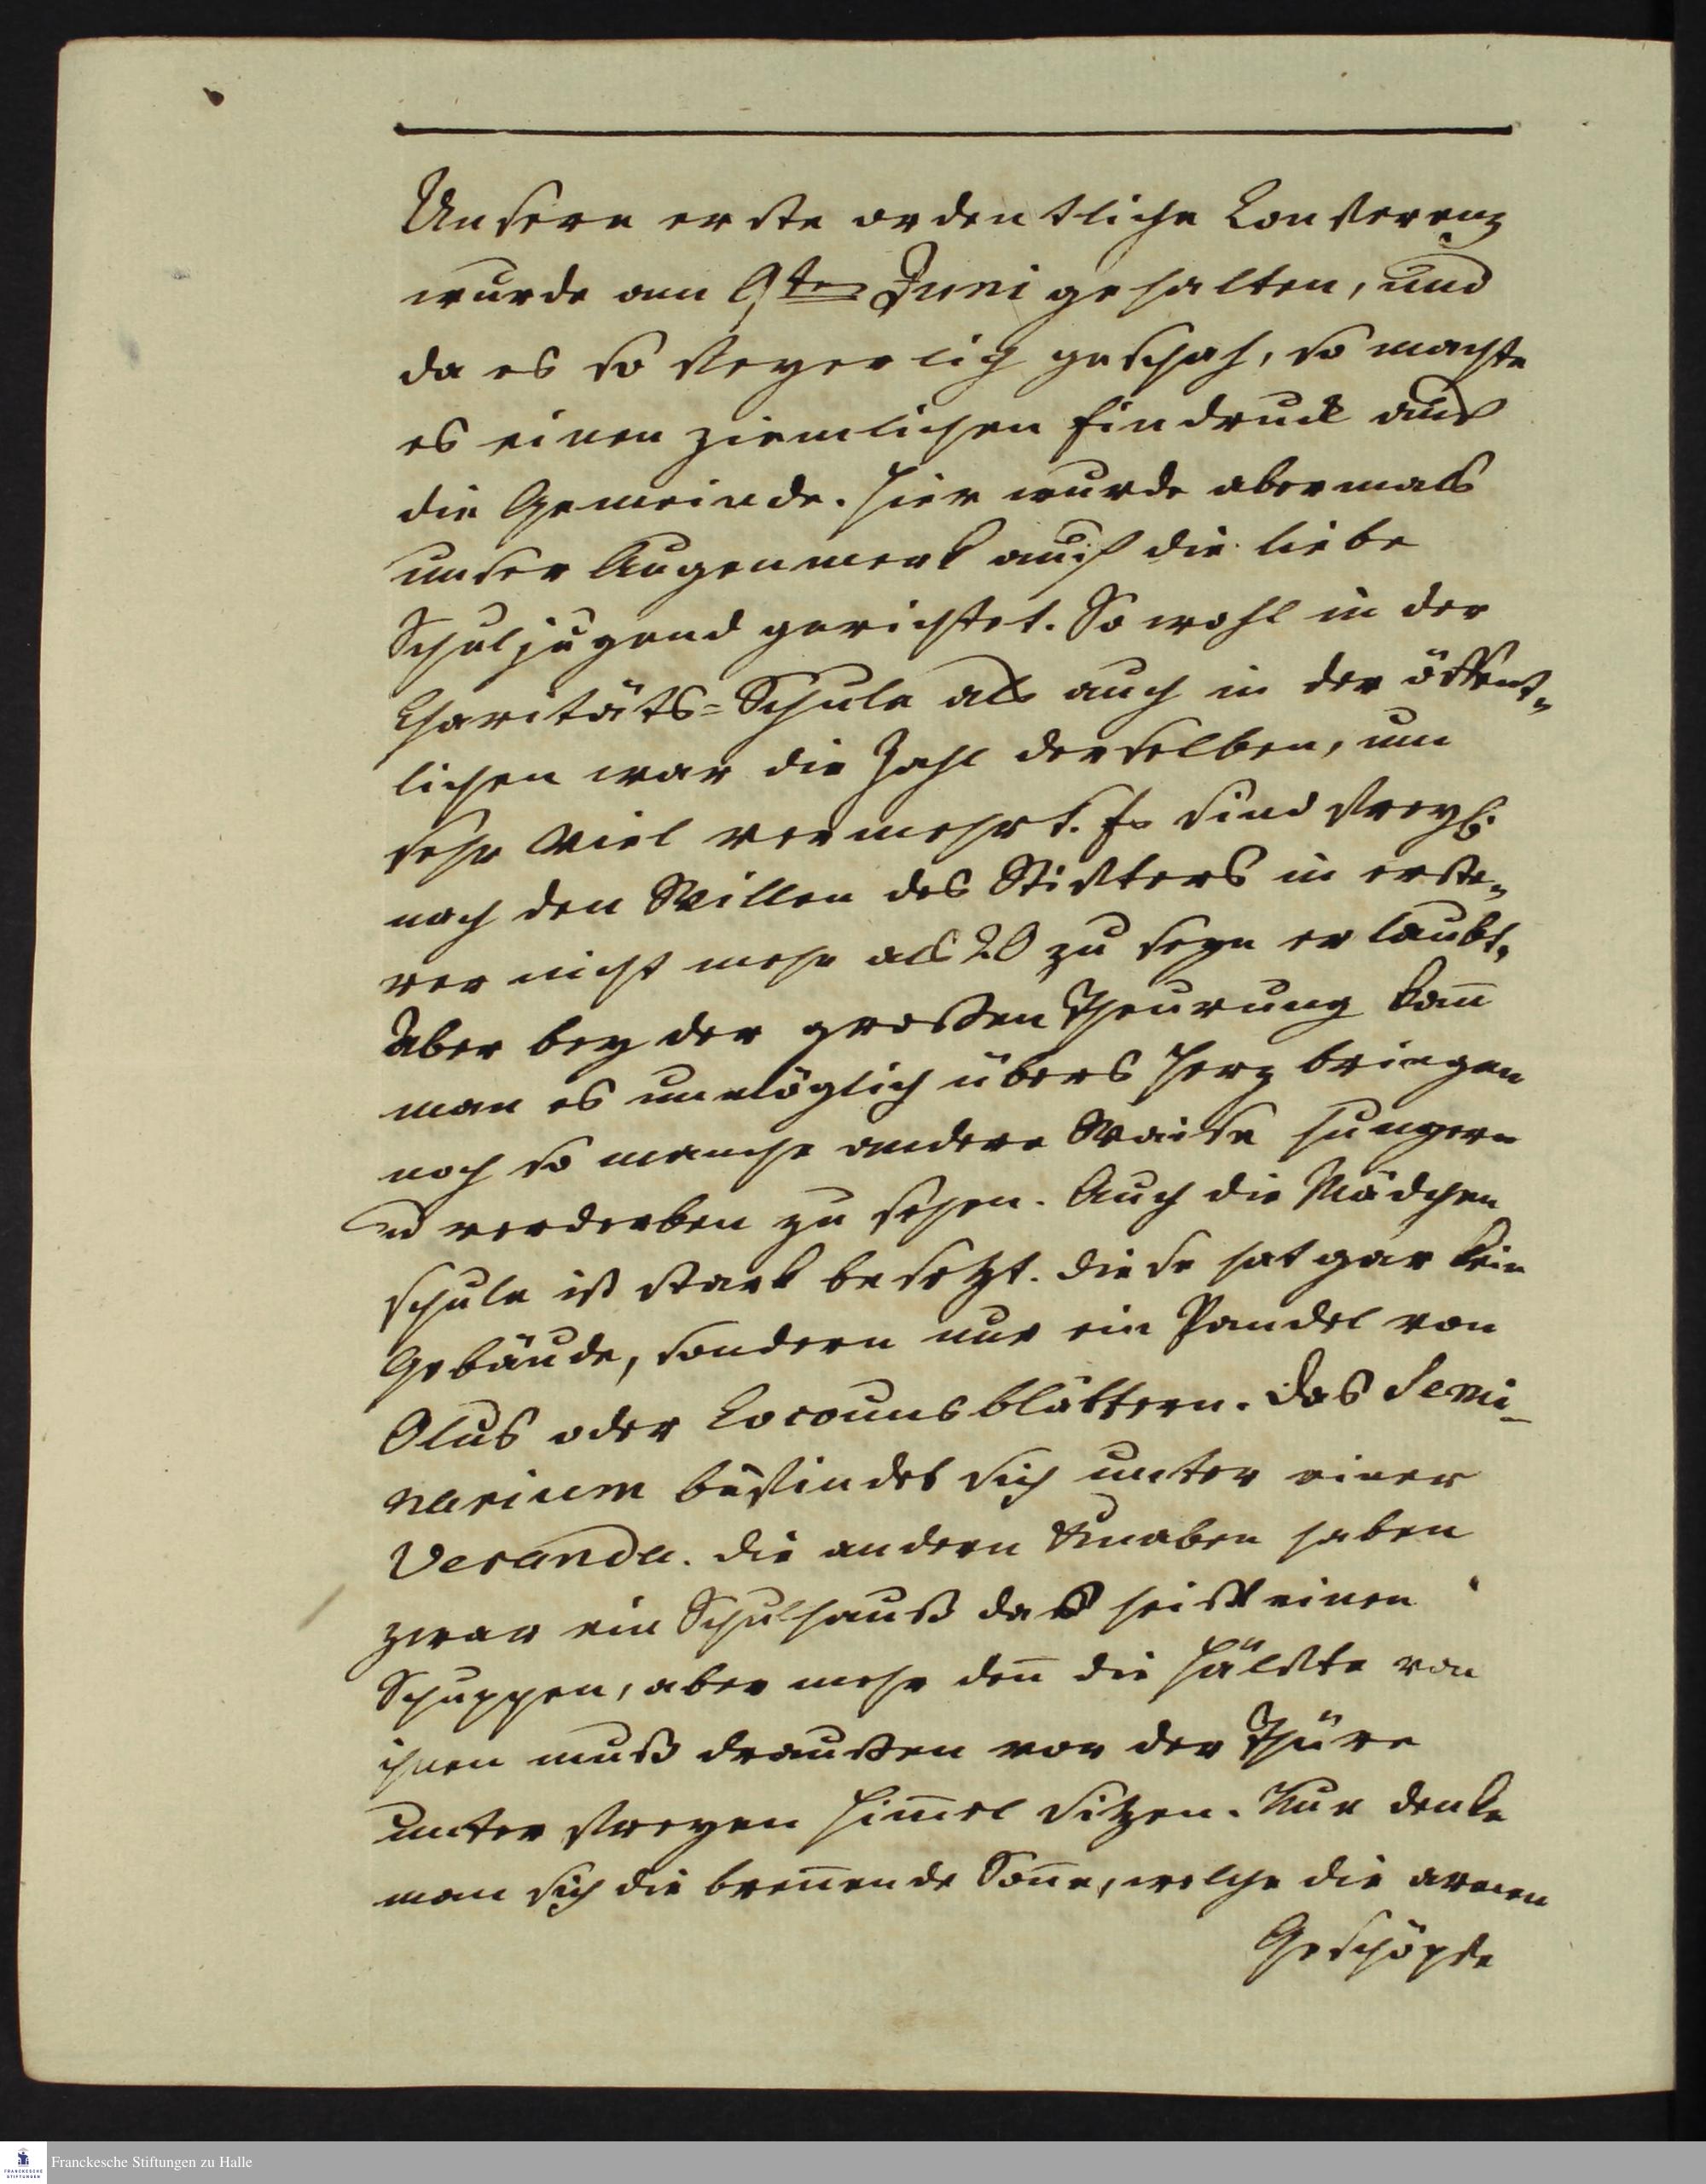 Unsere erste ordentliche Conferenz
wurde am 9ten Juni gehalten, und
da es so feyerlich geschah, so machte
es einen ziemlichen Eindruck auf
die Gemeinde. Hier wurde abermals
unser Augenmerk auf die liebe
Schuljugend gerichtet. So wohl in der
Charitäts=Schule als auch in der öffent=
lichen war die Zahl derselben, um
sehr viel vermehrt. Es sind freyl.
nach den Willen des Stifters in erste=
rer nicht mehr als 20 zu seyn erlaubt.
Aber bey der großen Theurung kan̄
man es unmöglich übers Herz bringen
noch so manche andere Waise hungern
u verderben zu sehen. Auch die Mädchen
schule ist stark besetzt. Diese hat gar kein
Gebäude, sondern nur ein Pandel von
Olus oder Cocounsblättern. Das Semi-
narium befindet sich unter einer
Veranda. Die andern Knaben haben
zwar ein Schulhauß das heißt einen
Schuppen, aber mehr den̄ die Hälfte von
ihnen muß draußen vor der Thüre
unter freyen Him̄el sitzen. Nun denke
man sich die bren̄ende Son̄e, welche die armen
Geschöpfe
Franckesche Stiftungen zu Halle